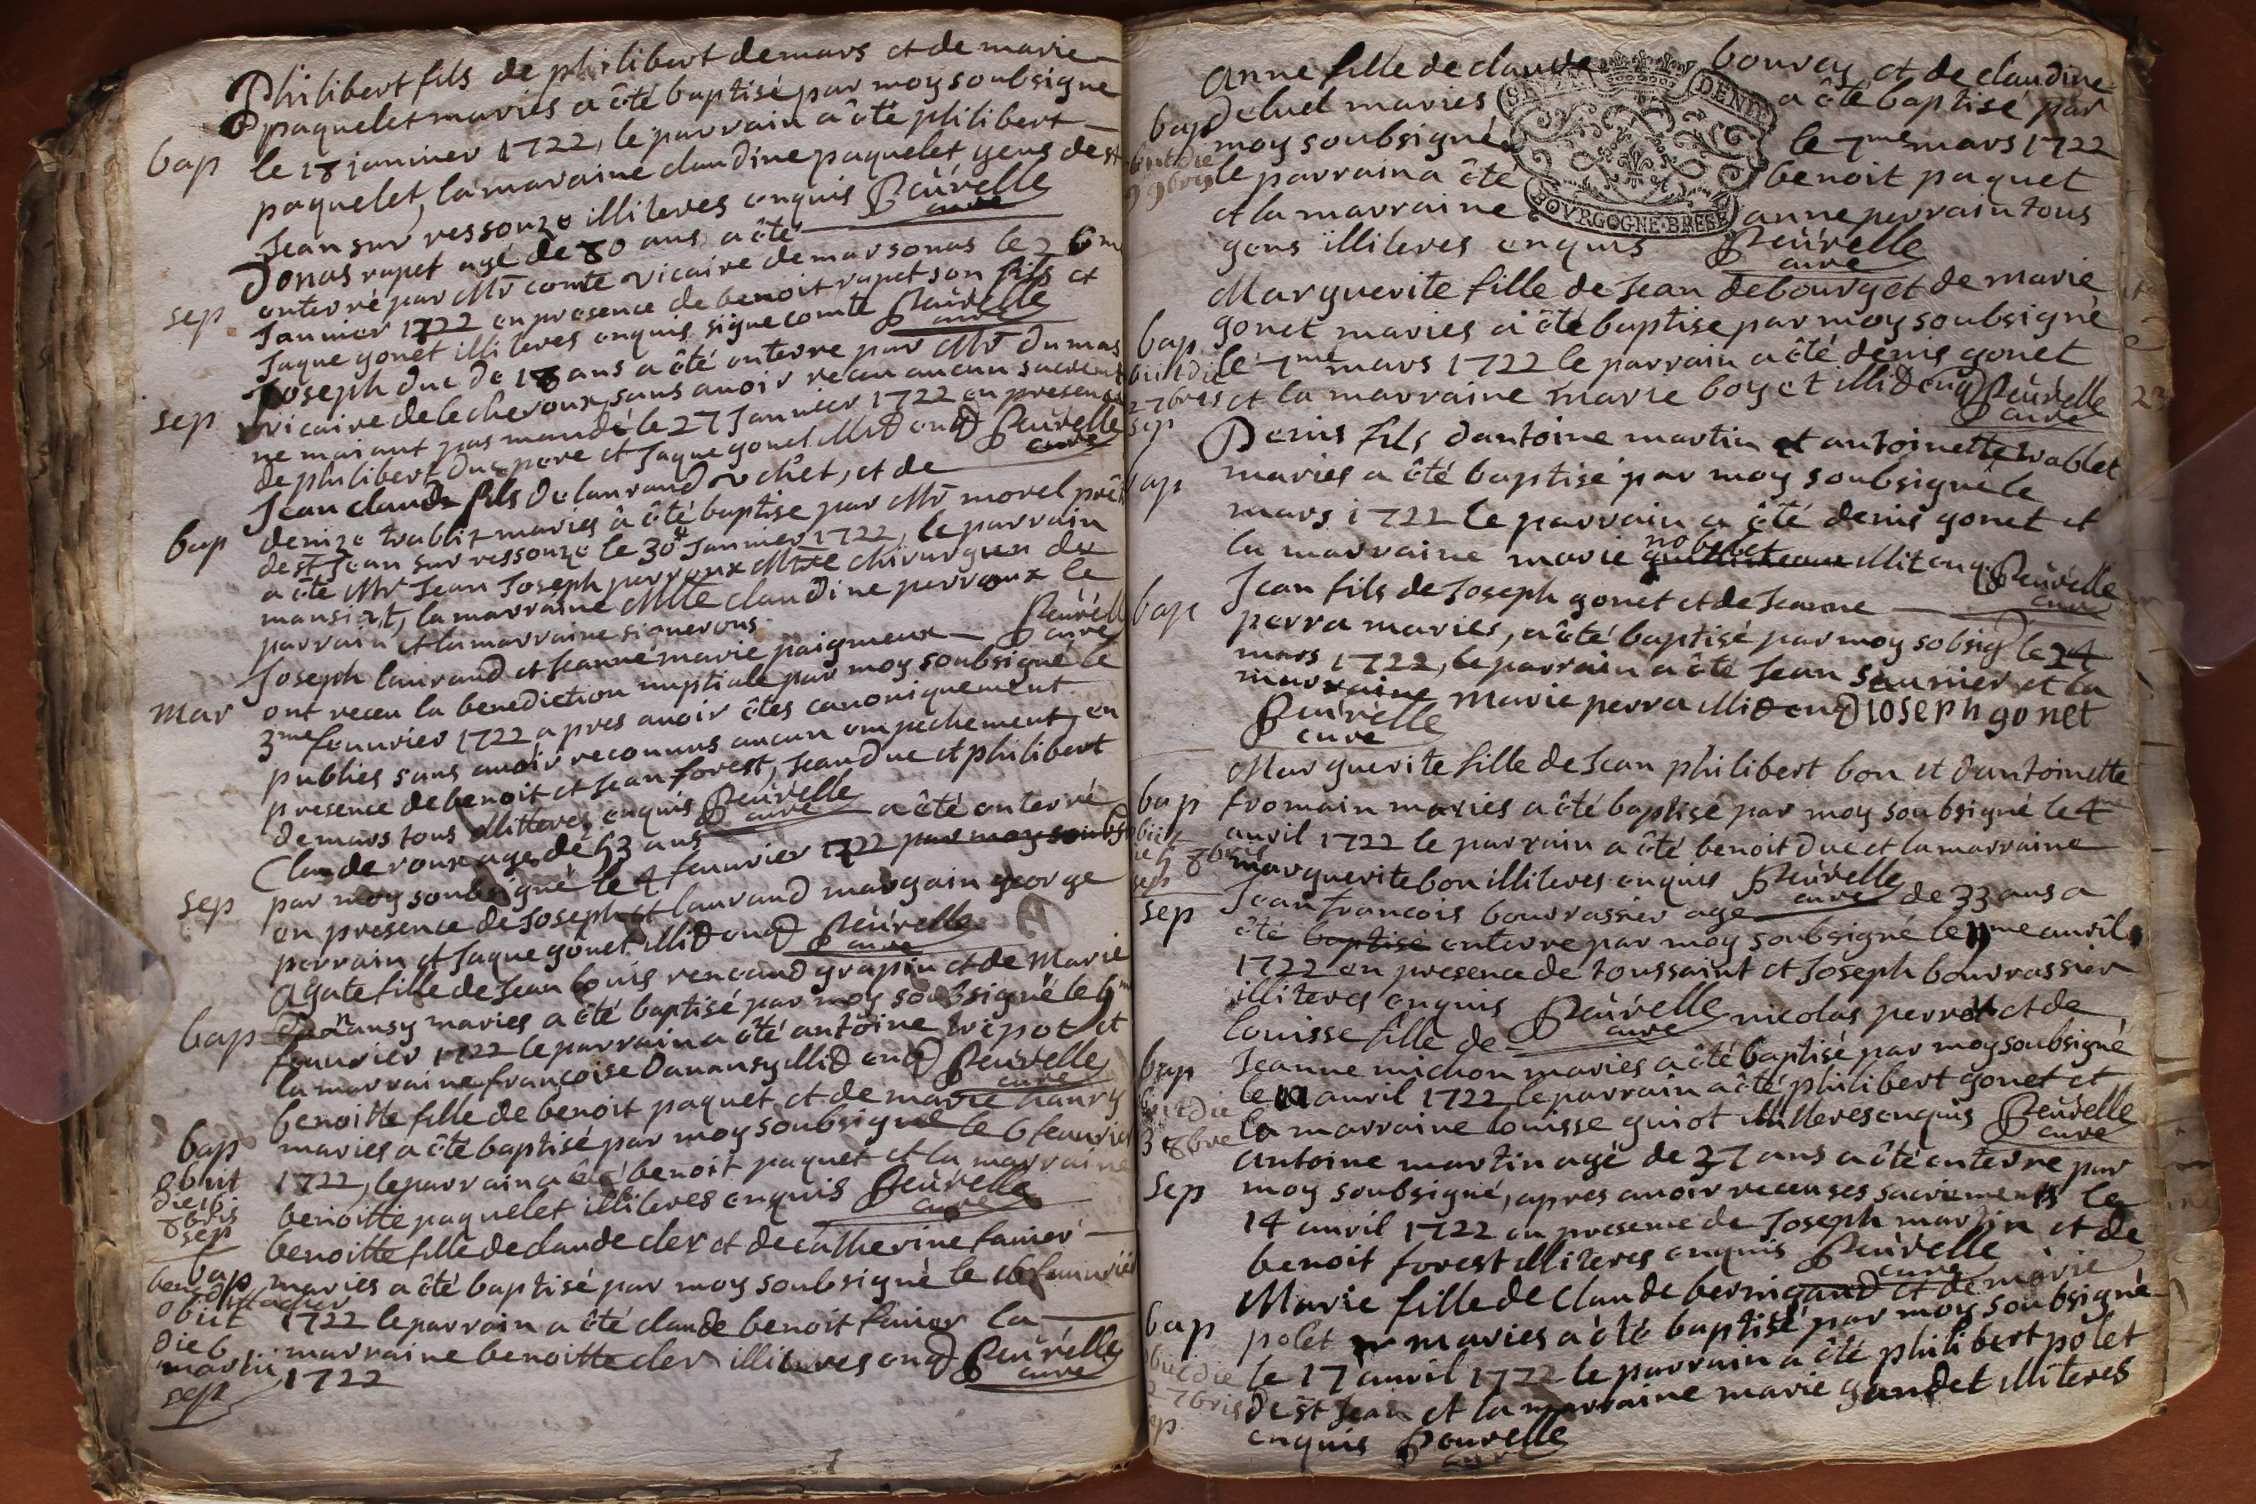 Philibert fils de philibert demars et de marie
paquelet maries a êté baptisé par moy soubsigne
bap le 18 januier 1722, le parrain a êté philibert
paquelet, la maraine claudine paquelet gens de st
Jean sur ressouze illiteres enquis Peuvrelle
cure
Jonas rapet agé de 80 ans a êté
sep enterré par Mr comte vicaire de marsonas le
Januier 1722 en presence de benoit rapet son fils et
Jaque gonet illiteres enquis signe comte Peuvrelle
cure
Joseph duc de 18 ans a êté enterre par Mr dumas
sep vicaire de lecheroux sans auoir receu aucun sacrent
ne maiant pas mandé le 27 Januier 1722 en presence
de philibert duc pere et Jaque gonet illit enq Peuvrelle
cure
Jean claude fils de laurand vchet, et de
bap denize trablit maries a êté baptise par Mr morel prêt
de st Jean sur ressouze le 30e Januier 1722, le parrain
a êté Mr Jean Joseph perroux Mtre chirurgien de
mansiat, la marraine Mlle claudine perroux le
parrain et la marraine signerons Peuvrelle
cure
Joseph laurand et Jeanne marie paigneux
mar ont receu la benediction nuptiale par moy soubsigné le
3me feurier 1722 apres auoir êtes canoniquement
publies sans auoir reconnus aucun empechement, en
presence de benoit et Jean forest, Jean duc et philibert
demars tous illitteres enquis Peuvrelle
cure
Claude roux age de 53 ans a êté enterré
sep par moy soubsigné le 4 feurier 1722 par moy soubs
en presence de Joseph et laurand margain george
perrain et Jaque gonet illit enq Peuvrelle
cure
Agate fille de Jean louis renaud grapin et de Marie
bap danansy maries a êté baptisé par moy soubsigné le 5me
feurier 1722 le parrain a êté antoine tripot et
la marraine françoise Danansy illit enq Peuvrelle
cure
benoitte fille de benoit paquet et de marie hanry
bap maries a êté baptisé par moy soubsigné le 6 feurier
obiit
die 16
8bris
sep
1722, le parrain a êté benoit paquet et la marraine
benoitte paquelet illiteres enquis Peuvrelle
cure
benoitte fille de claude cler et de catherine fauier
bap maries a êté baptisé par moy soubsigné le 16 feurier
obiit
die 6
martii
sep
1722 le parrain a êté claude benoit fauier la
marraine benoitte cler illiteres enq Peuvrelle
cure
1722
Anne fille de claude bouvay et de claudine
bap deluel maries a êté baptisé par
moy soubsigné le 7me mars 1722
obiit die
9bris
le parrain a êté benoit paquet
et la marraine anne perrain tous
gens illiteres enquis Peuvrelle
cure
GENER DE DENIE
BOVRGOGNE·BRESSE
Marguerite fille de Jean debourg et de marie
bap gonet maries a êté baptise par moy soubsigné
obiit die
27bris
sep
le 7me mars 1722 le parrain a êté denis gonet
et la marraine marie boyet illit enq Peuvrelle
cure
Denis fils dantoine martin et antoinette trablet
bap maries a êté baptisé par moy soubsigné le
mars 1722 le parrain a êté denis gonet et
la marraine marie noblet illit enq Peuvrelle
cure
bap Jean fils de Joseph gonet et de Jeanne
perra maries, a êté baptisé par moy sobsig le 24
mars 1722, le parrain a êté Jean saunier et la
marraine marie perra illit enq Joseph gonet
Peuvrelle
cure
Marguerite fille de Jean philibert bon et dantoinette
bap fromain maries a êté baptisé par moy soubsigné le 4me
obiit
die 5 8bris
sep
auril 1722 le parrain a êté benoit duc et la marraine
marguerite bon illiteres enquis Peuvrelle
cure
sep Jean francois bourrassier age de 33 ans a
êté baptisé enterre par moy soubsigné le 11me auril
1722 en presence de toussaint et Joseph bourrassier
illiteres enquis Peuvrelle
cure
Louisse fille de nicolas perret et de
bap Jeanne michon maries a êté baptisé par moy soubsigné
obiit die
3 8bre
le 12 auril 1722 le parrain a êté philibert gonet et
la marraine louisse guiot illitteres enquis Peuvrelle
cure
Antoine martin agé de 37 ans a êté enterre par
sep moy soubsigné, apres auoir receu ses sacremens le
14 auril 1722 en presence de Joseph martin et de
benoit forest illiteres enquis Peuvrelle
cure
Marie fille de claude bernigaud et de marie
bap polet maries a êté baptisé par moy soubsigné
obiit die
2 7bris
sep
le 17 auril 1722 le parrain a êté philibert polet
de st Jean et la marraine marie gandet illiteres
enquis Peuvrelle
cure